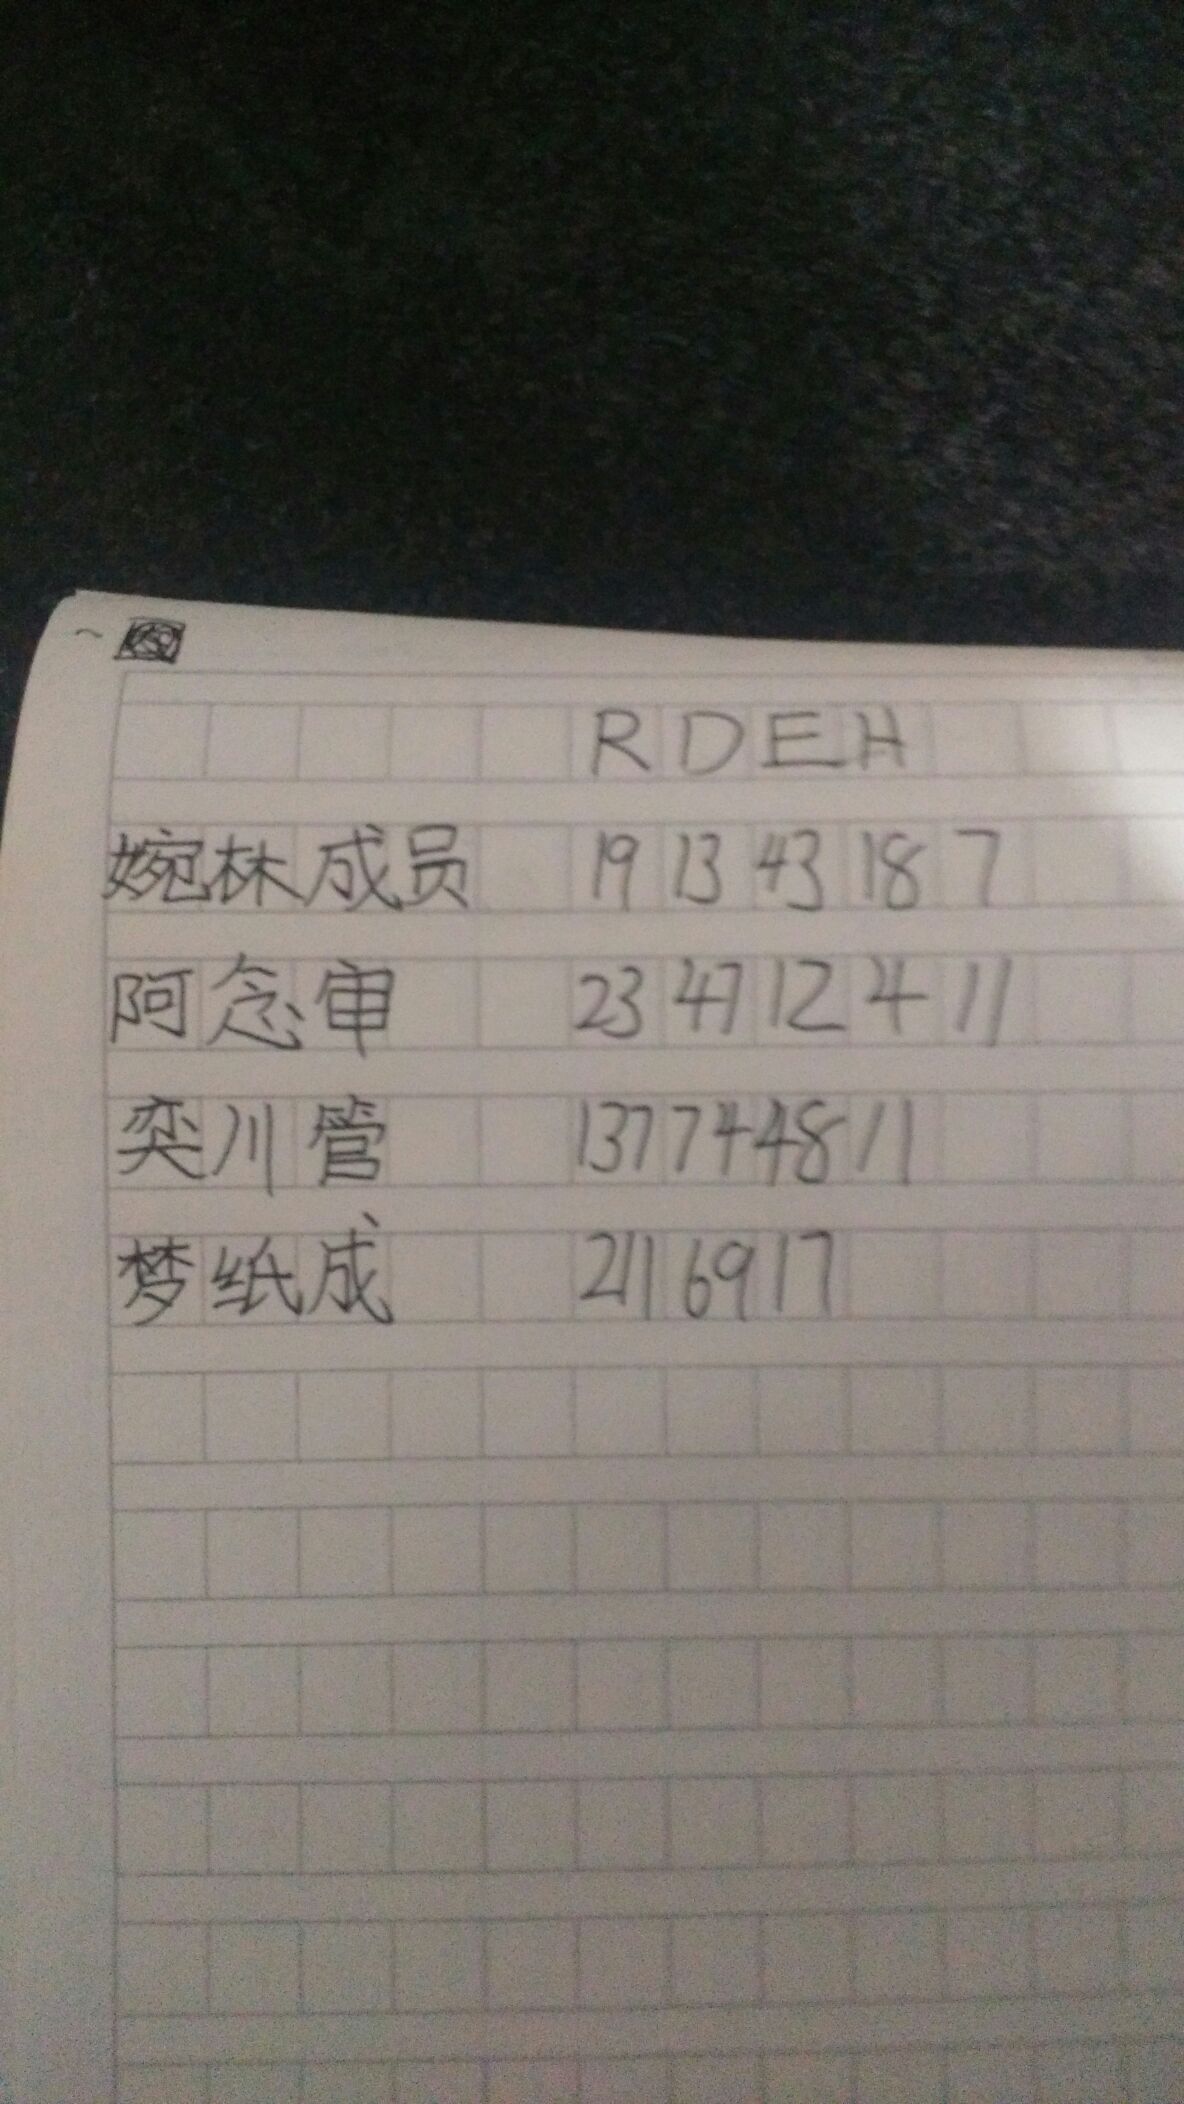 RDEH
婉林成员 19 13 43 18 7
阿念审 23 47 12 4 11
奕川管 137744811
梦纸成 2116917